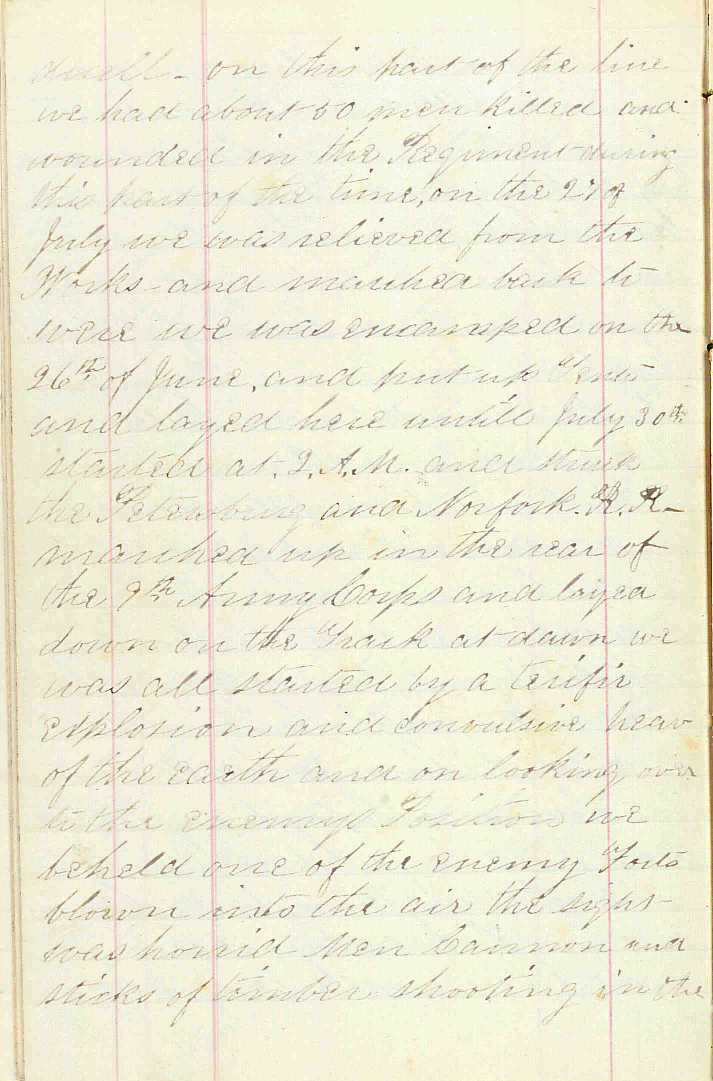 duell - on this part of the line
we had about 50 men killed and
wounded in the Regiment during
this part of the time, on the 27 of
July we was relieved from the
Works - and marched back to
were we was encamped on the
26th of June, and put up Tents
and layed here untill July 30th
started at. 2. A.M. and struck
the Petersburg and Norfork. R. R-
marched up in the rear of
the 9th Army Corps and layed
down on the Track at dawn we
was all started by a terific
explosion and convulsive heav
of the earth and on looking over
to the enemys Position we
beheld one of the enemy Forts
blown into the air the sight
was horrid Men Cannon and
sticks of timber shooting in the